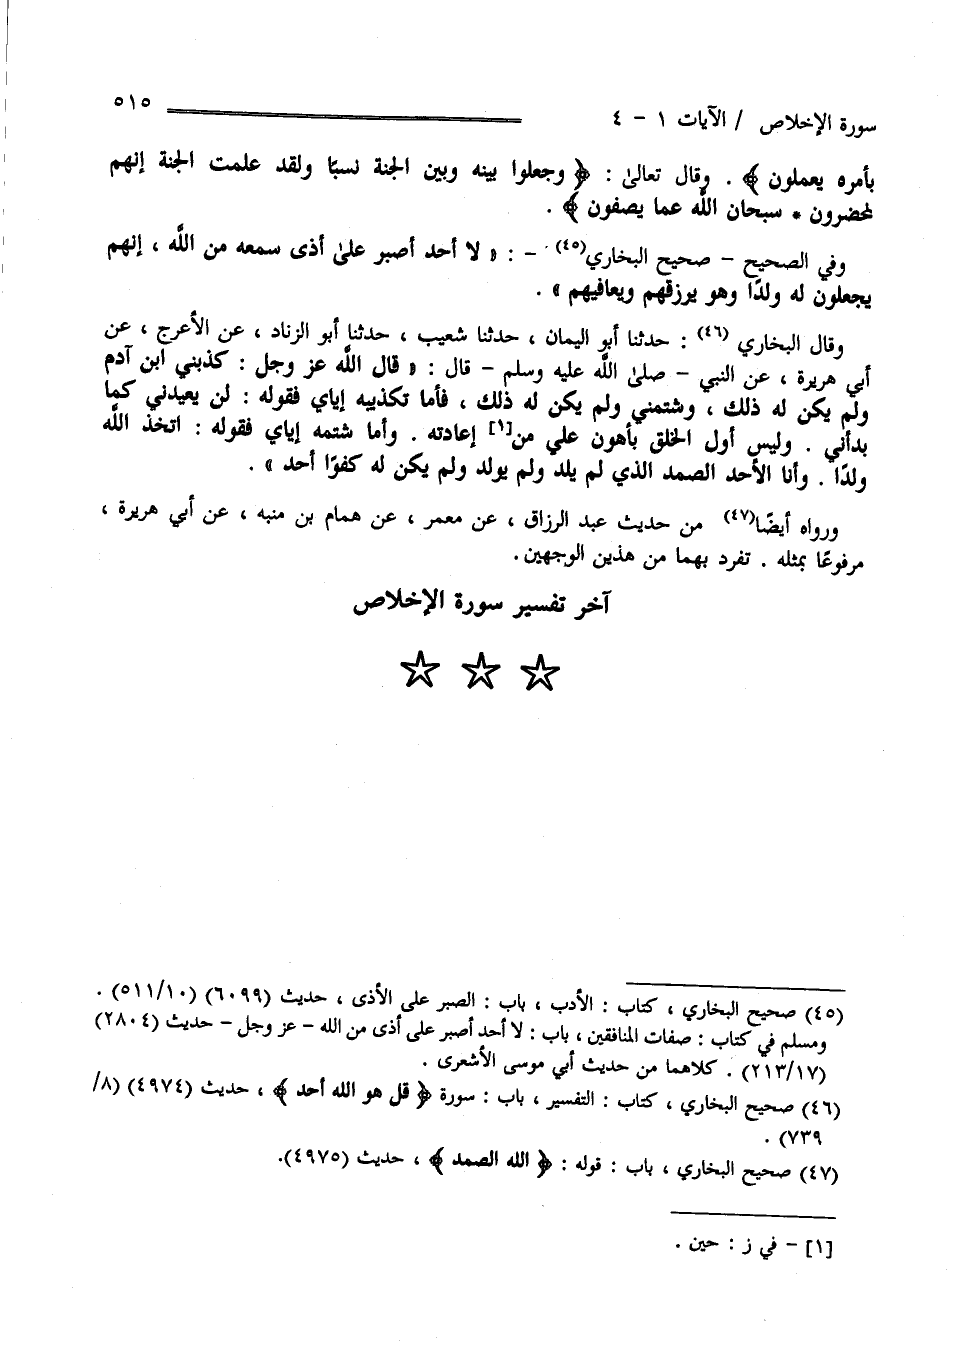 سورة الإخلاص / الآيات ١ - ٤ ٥١٥
بأمره يعملون ﴾ . وقال تعالىٰ : ﴿ وجعلوا بينه وبين الجنة نسبًا ولقد علمت الجنة إنهم
لمحضرون * سبحان اللَّه عما يصفون ﴾ .
وفي الصحيح - صحيح البخاري(٤٥) - : « لا أحد أصبر علىٰ أذى سمعه من اللَّه ، إنهم
يجعلون له ولدًا وهو يرزقهم ويعافيهم » .
وقال البخاري (٤٦) : حدثنا أبو اليمان ، حدثنا شعيب ، حدثنا أبو الزناد ، عن الأعرج ، عن
أبي هريرة ، عن النبي - صلىٰ اللَّه عليه وسلم - قال : « قال اللَّه عز وجل : كذبني ابن آدم
ولم يكن له ذلك ، وشتمني ولم يكن له ذلك ، فأما تكذيبه إياي فقوله : لن يعيدني كما
بدأني . وليس أول الخلق بأهون علي من[١] إعادته . وأما شتمه إياي فقوله : اتخذ اللَّه
ولدًا . وأنا الأحد الصمد الذي لم يلد ولم يولد ولم يكن له كفوًا أحد » .
ورواه أيضًا(٤٧) من حديث عبد الرزاق ، عن معمر ، عن همام بن منبه ، عن أبي هريرة ،
مرفوعًا بمثله . تفرد بهما من هذين الوجهين.
آخر تفسير سورة الإخلاص
(٤٥) صحيح البخاري ، كتاب : الأدب ، باب : الصبر على الأذى ، حديث (٦٠٩٩) (٥١١/١٠) .
ومسلم في كتاب : صفات المنافقين ، باب : لا أحد أصبر على أذى من الله - عز وجل - حديث (٢٨٠٤)
(٢١٣/١٧) . كلاهما من حديث أبي موسى الأشعرى .
(٤٦) صحيح البخاري ، كتاب : التفسير ، باب : سورة ﴿ قل هو الله أحد ﴾ ، حديث (٤٩٧٤) (٨/
٧٣٩) .
(٤٧) صحيح البخاري ، باب : قوله : ﴿ الله الصمد ﴾ ، حديث (٤٩٧٥).
[١] - في ز : حين .